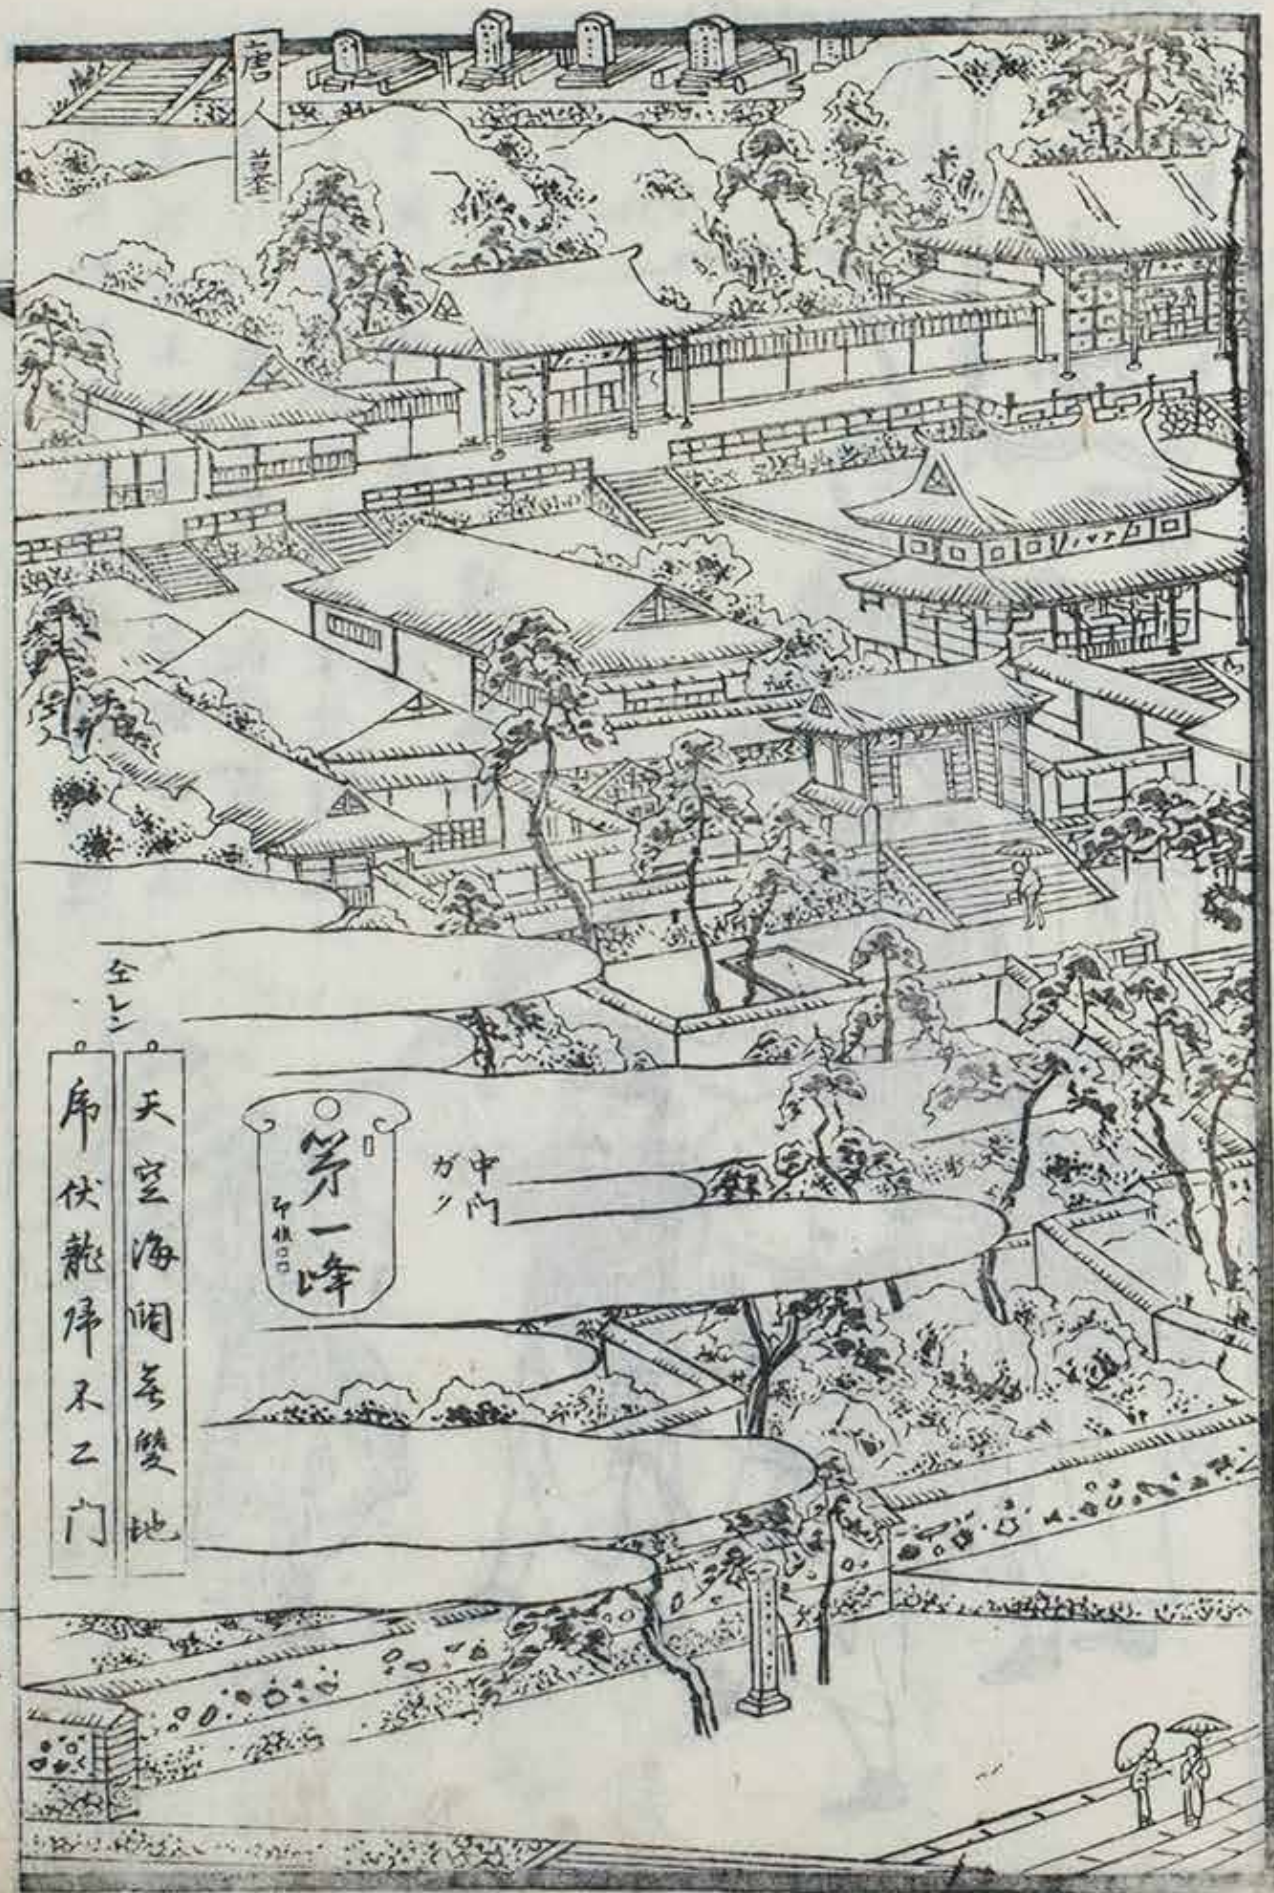 唐人墓
中門
ガク
第一峰
仝レン
天空海闊無雙地
乕伏龍帰不二门